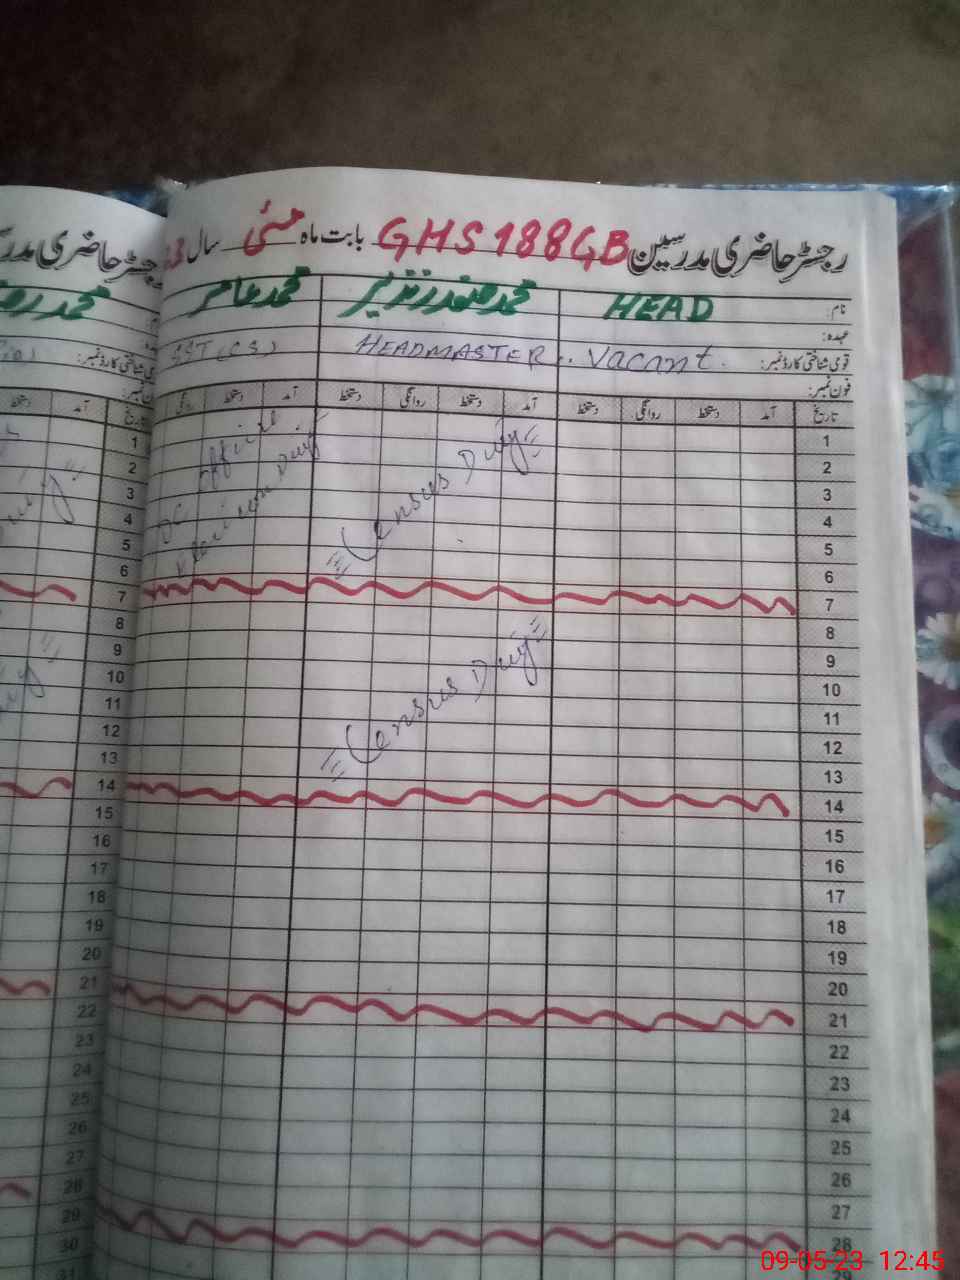 رجسٹر حاضری مدرسین GHS 188GB بابت ماہ مئی سال
نام: HEAD محمد صفدر نذیر محمد عامر
عہدہ:
قومی شناختی کارڈ نمبر: Vacant. HEADMASTER SST (CS)
فون نمبر:
تاریخ آمد دستخط روانگی دستخط آمد دستخط روانگی دستخط آمد دستخط روانگی
1
2
3
4
5
6
7
8
9
10
11
12
13
14
15
16
17
18
19
20
21
22
23
24
25
26
27
28
29
= Census Duty =
= Census Duty =
Office
رجسٹر حاضری
محمد
تاریخ آمد دستخط
1
2
3
4
5
6
7
8
9
10
11
12
13
14
15
16
17
18
19
20
21
22
23
24
25
26
27
28
29
30
31
09-05-23 12:45